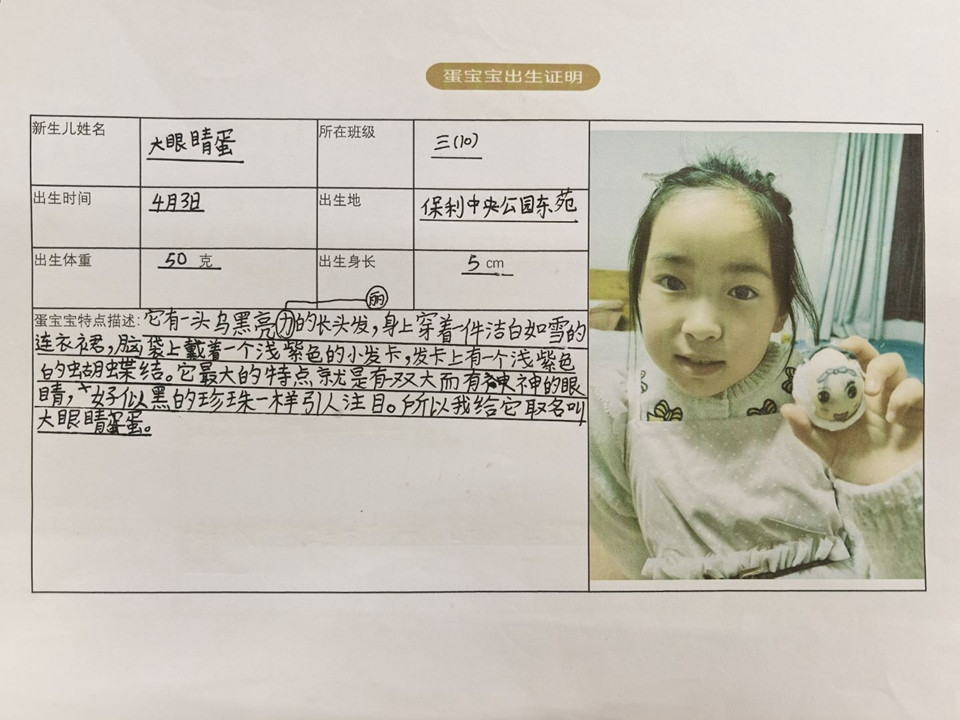 蛋宝宝出生证明
新生儿姓名 大眼睛蛋 所在班级 三(10)
出生时间 4月3日 出生地 保利中央公园东苑
出生体重 50 克 出生身长 5 cm
丽
蛋宝宝特点描述:它有一头乌黑亮力的长头发,身上穿着一件洁白如雪的
连衣裙,脑袋上戴着一个浅紫色的小发卡,发卡上有一个浅紫色
的蝴蝶结。它最大的特点就是有一双大而有神的眼
睛,好似黑的珍珠一样引人注目。所以我给它取名叫
大眼睛蛋。